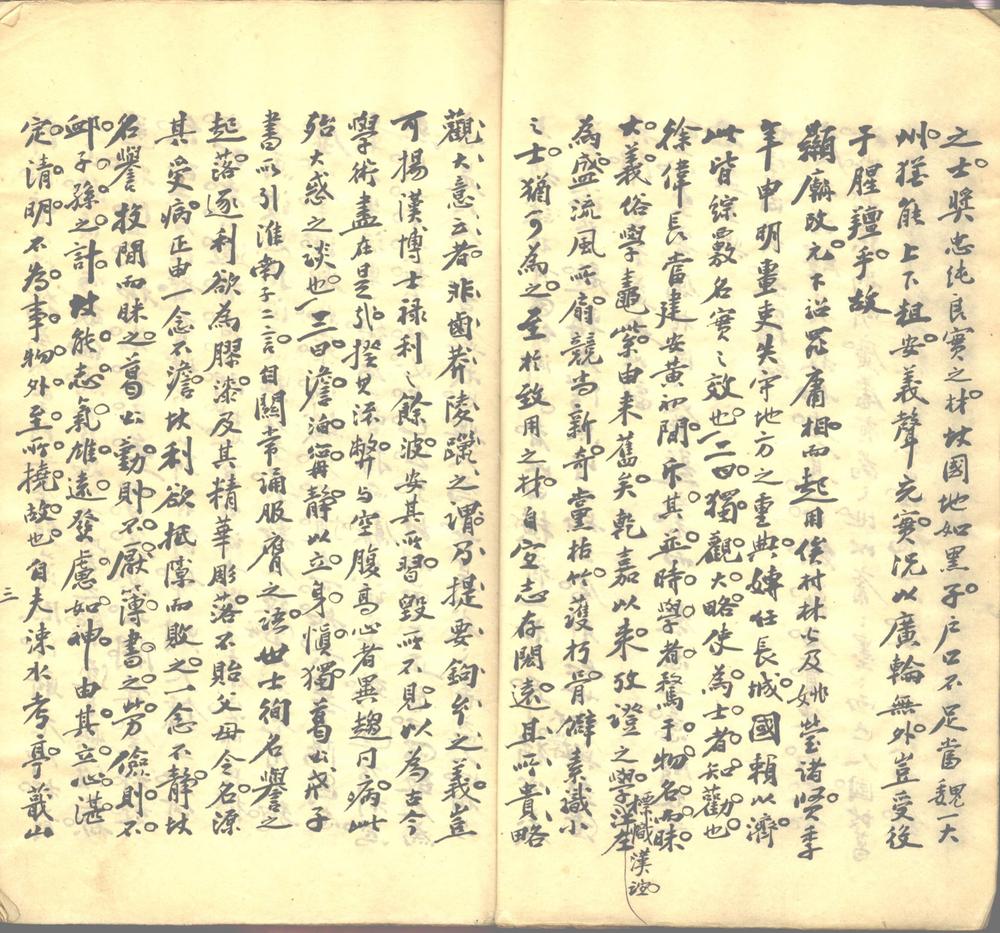 之士奬忠純良實之材故國地如黑子户口不足當魏一大
州猶能上下粗安義聲充實況以廣輪無外豈受後
于腥羶乎故
顯廟改元下詔罷庸相而起用侯村林公及姚瑩諸賢季
年申明重吏失守地方之重典專任長城國賴以濟
此皆綜覈名實之效也二曰獨觀大略使為士者知勸也
徐偉長當建安黃初間斥其並時學者騖于物名而昧
大義俗學鼃紫由来舊矣乾嘉以来攷證之學
標幟漢證
為盛流風所扇競尚新奇黨枯竹護朽骨僻素識小
之士猶可為之至於致用之材自宜志存閎遠其所貴略
觀大意云者非鹵莽陵躐之謂乃提要鉤玄之義豈
可揚漢博士祿利之餘波安其所習毀所不見以為古今
學術盡在是引揆其流弊与空腹高心者異趨同病此
殆大惑之談也三曰澹泊甯靜以立身慎獨葛公戒子
書所引淮南子二言自關常誦服膺之語世士徇名譽之
起落逐利欲為膠漆及其精華彫落不貽父母令名源
其受病正由一念不澹故利欲抵隙而敗之一念不靜故
名譽投間而昧之葛公勤則不厭簿書之勞儉則不
卹子孫之計故能志氣雄遠發慮如神由其立心湛
定清明不為事物外至所撓故也自夫涑水考亭蕺山
三